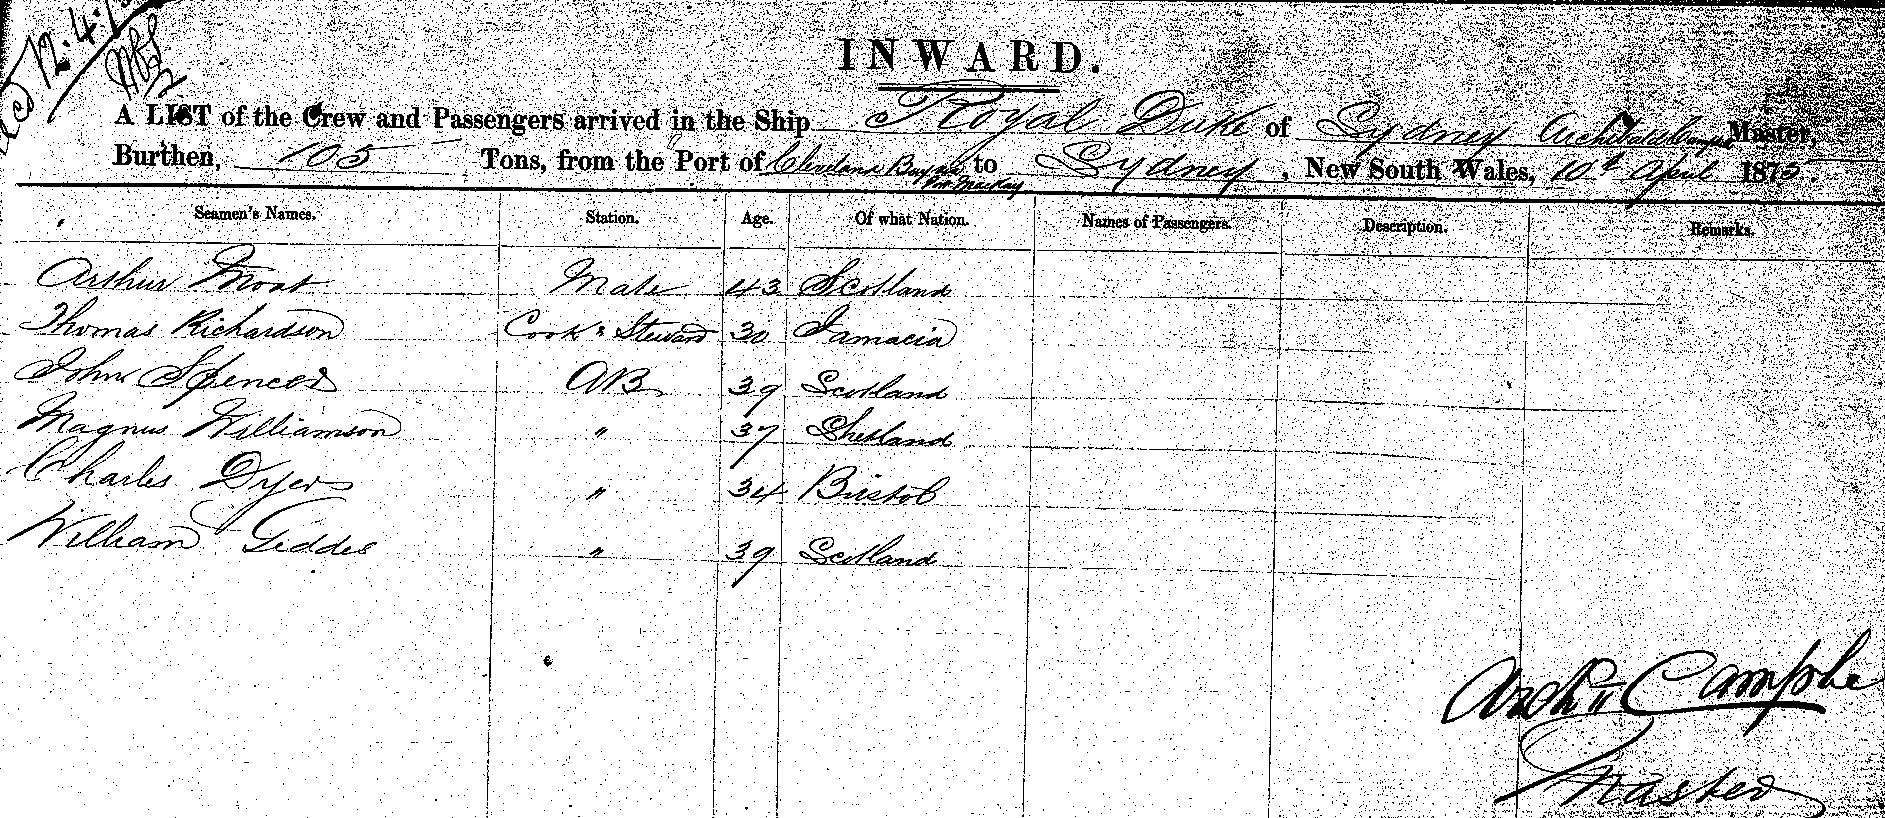 12.4.
INWARD.
A LIST of the Crew and Passengers arrived in the Ship Royal Duke of Sydney Archibald Campbell Master,
Burthen, 105 Tons, from the Port of Cleveland Bay via Port Mackay to Sydney, New South Wales, 10th April 1875.
Seamen's Names. Station. Age. Of what Nation. Names of Passengers. Description. Remarks.
Arthur Moat Mate 43 Scotland
Thomas Richardson Cook & Steward 30 Jamacia
John Spencer AB 39 Scotland
Magnus Williamson " 37 Shetland
Charles Dyer " 34 Bristol
William Geddes " 39 Scotland
Archd Campbe
Master